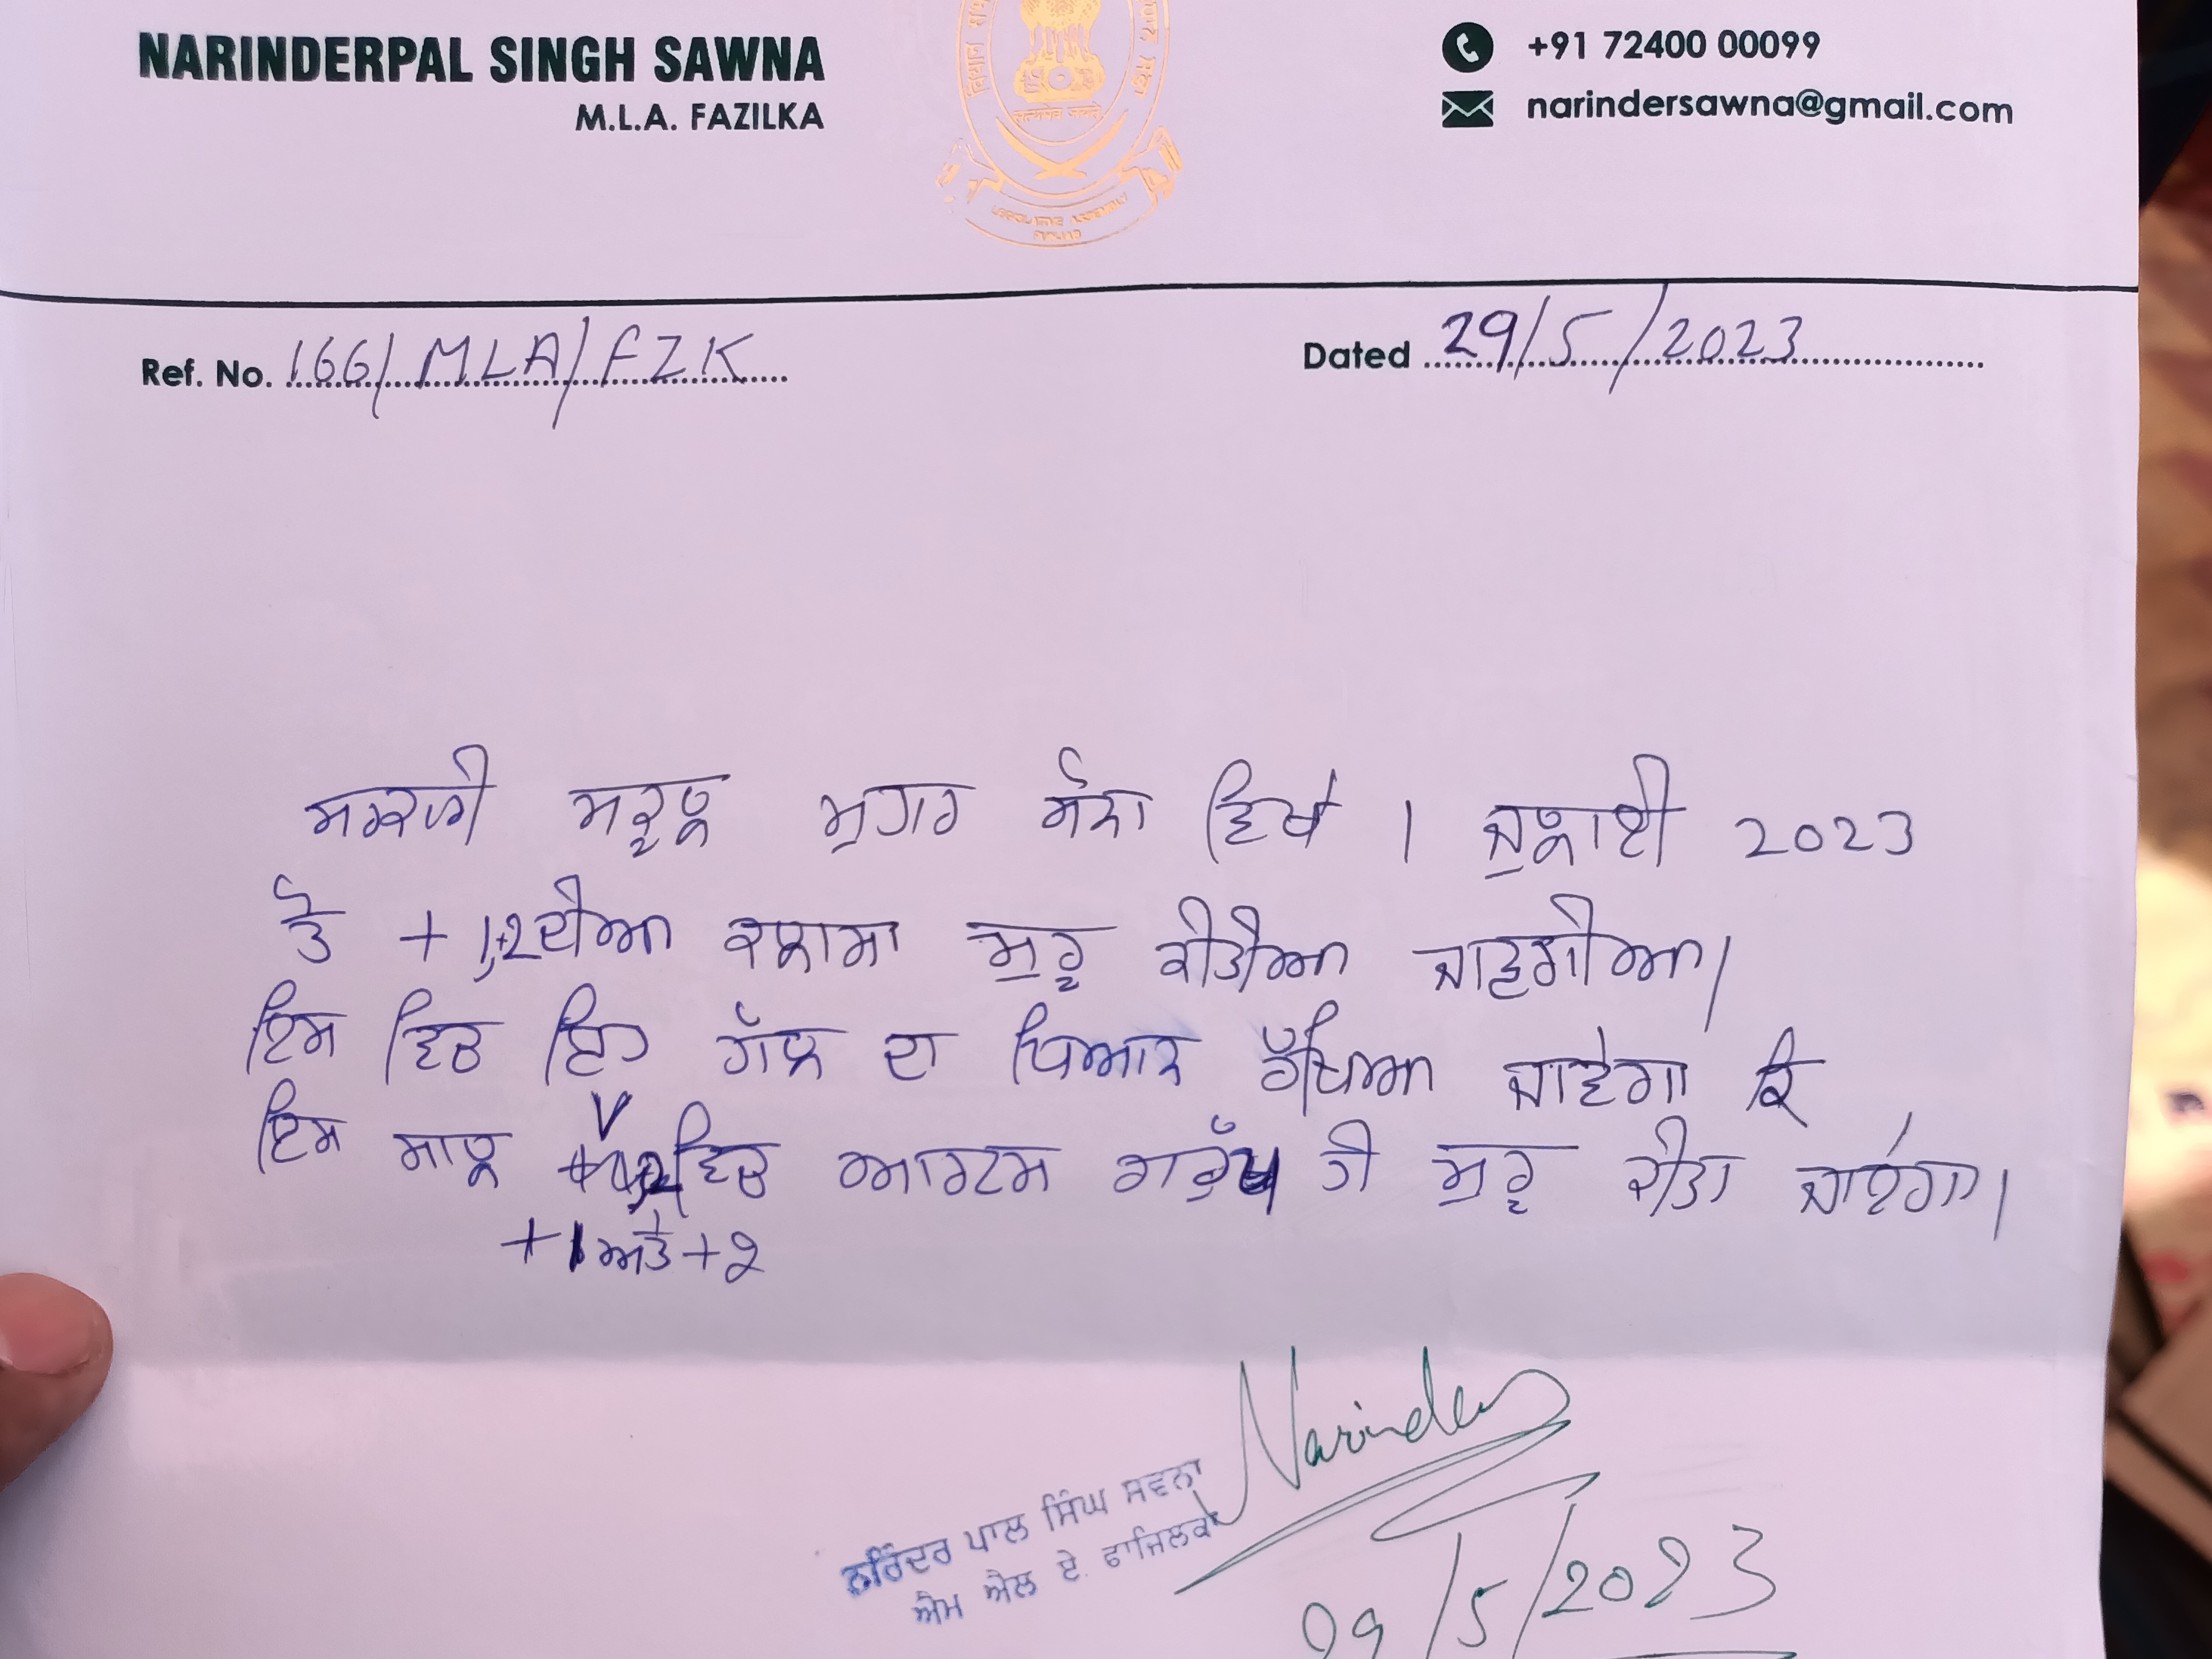 NARINDERPAL SINGH SAWNA
M.L.A. FAZILKA
सत्यमेव जयते
LEGISLATIVE ASSEMBLY
PUNJAB
+91 72400 00099
narindersawna@gmail.com
Ref. No. 166/MLA/FZK
Dated 29/5/2023
ਸਰਕਾਰੀ ਸਕੂਲ ਮੁਹਾਰ ਸੋਨਾ ਵਿਖੇ 1 ਜੁਲਾਈ 2023
ਤੋਂ +1,+2 ਦੀਆ ਕਲਾਸਾ ਸ਼ੁਰੂ ਕੀਤੀਆ ਜਾਣਗੀਆ।
ਇਸ ਵਿਚ ਇਹ ਗੱਲ ਦਾ ਧਿਆਨ ਰੱਖਿਆ ਜਾਵੇਗਾ ਕਿ
ਇਸ ਸਾਲ ਵਿਚ ਆਰਟਸ ਗਰੁੱਪ ਹੀ ਸ਼ੁਰੂ ਕੀਤਾ ਜਾਏਗਾ।
+1 ਅਤੇ +2
Narinder
ਨਰਿੰਦਰ ਪਾਲ ਸਿੰਘ ਸਵਨਾ
ਐਮ ਐਲ ਏ. ਫਾਜਿਲਕਾ
29/5/2023